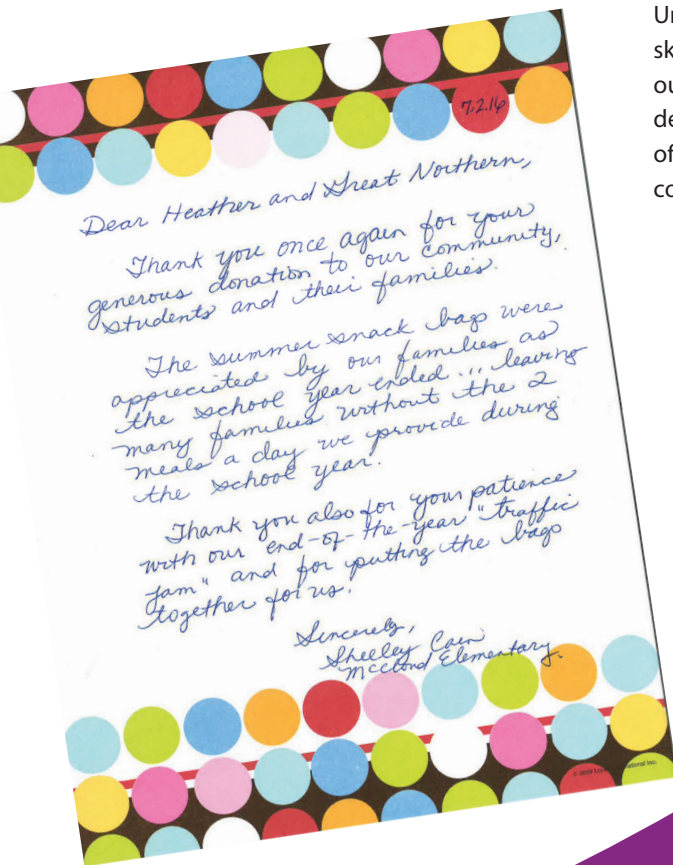 Un
sk
ou
de
of
co
7.2.16
Dear Heather and Great Northern,
Thank you once again for your
generous donation to our community,
students and their families.
The summer snack bags were
appreciated by our families as
the school year ended ... leaving
many families without the 2
meals a day we provide during
the school year.
Thank you also for your patience
with our end-of-the-year "traffic
jam" and for putting the bags
together for us.
Sincerely,
Shelley Cain
McCloud Elementary